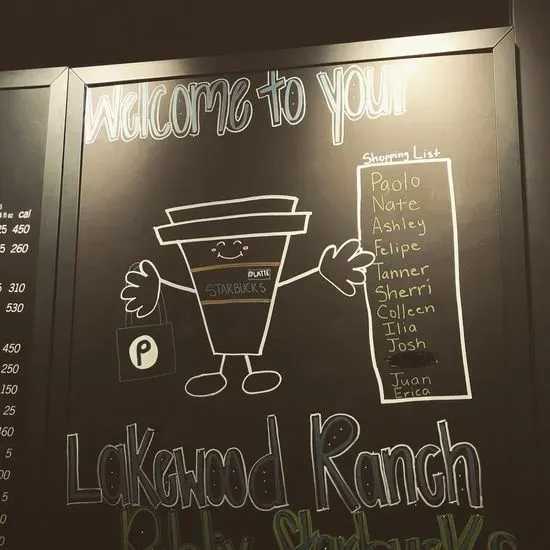 Welcome to your
Shopping List
Paolo
Nate
Ashley
Felipe
Tanner
Sherri
Colleen
Ilia
Josh
Juan
Erica
PLATTE
STARBUCKS
P
cal
25 450
5 260
5 310
530
450
250
150
25
460
5
00
5
5
0
Lakewood Ranch
Publix Starbucks